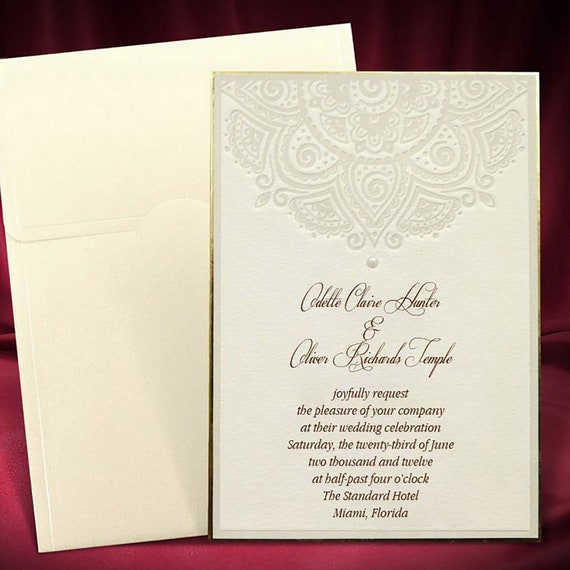 Odette Claire Hunter
&
Oliver Richards Temple
joyfully request
the pleasure of your company
at their wedding celebration
Saturday, the twenty-third of June
two thousand and twelve
at half-past four o'clock
The Standard Hotel
Miami, Florida